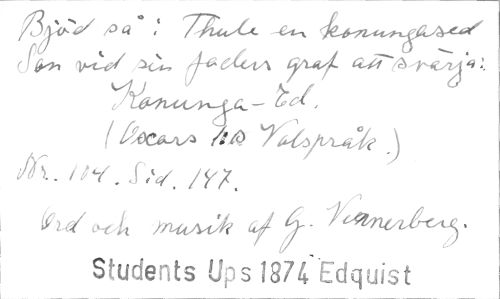 Bjöd så i Thule en konungased
Son vid sin faders graf att svärja:
Konunga-Ed.
(Oscars I:s Valspråk.)
Nr. 104. Sid. 147.
Ord och musik af G. Wennerberg.
Students Ups 1874 Edquist